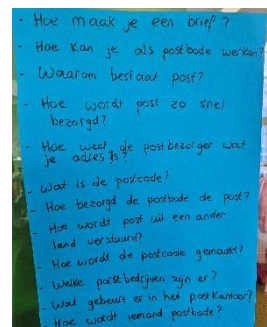 - Hoe maak je een brief?
- Hoe kan je als postbode werken?
- Waarom bestaat post?
- Hoe wordt post zo snel
bezorgd?
- Hoe weet de postbezorger wat
je adres is?
- Wat is de postcode?
- Hoe bezorgd de postbode de post?
- Hoe wordt post uit een ander
land verstuurd?
- Hoe wordt de postcode gemaakt?
- Welke postbedrijven zijn er?
- Wat gebeurt er in het postkantoor?
- Hoe wordt iemand postbode?